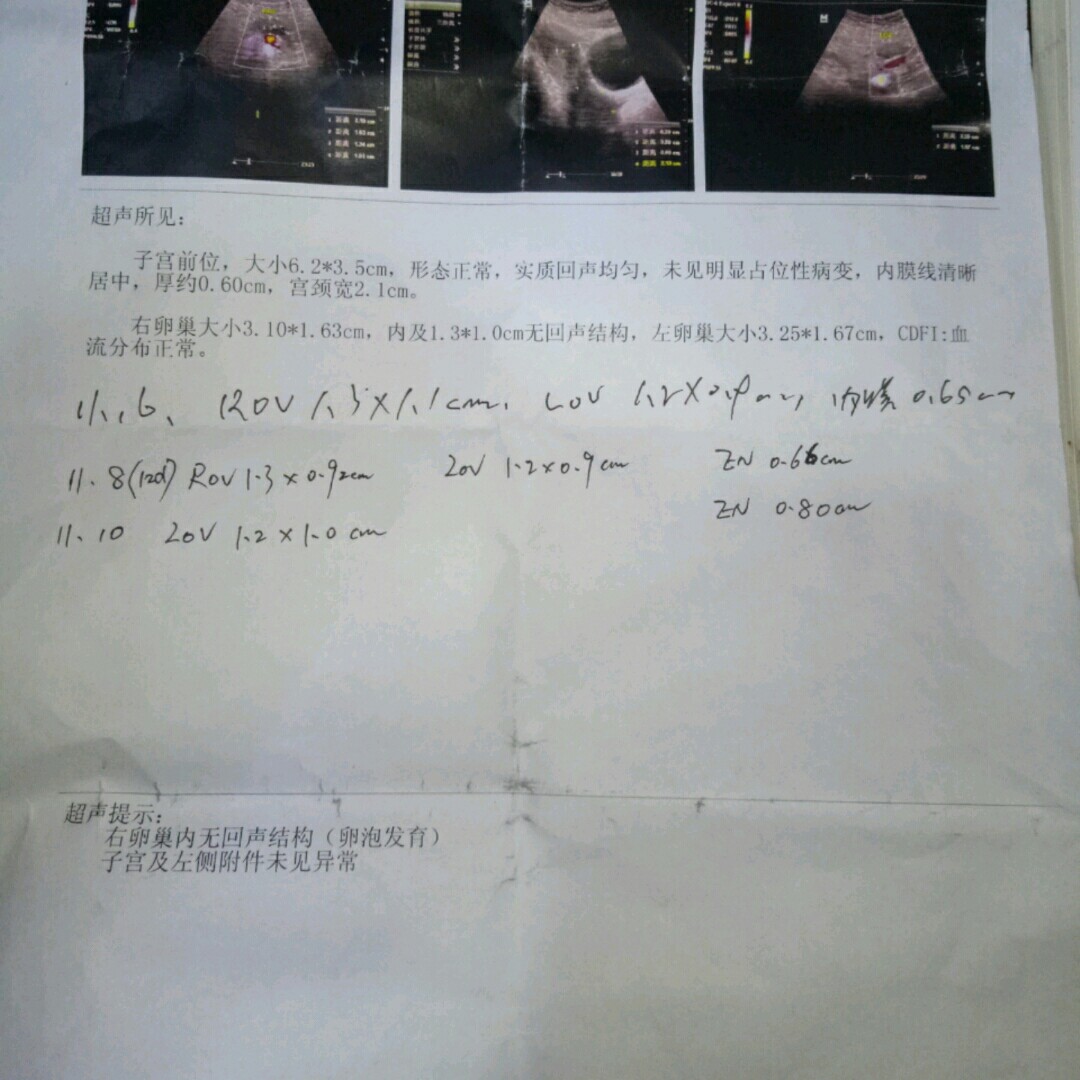 超声所见:
子宫前位，大小6.2*3.5cm，形态正常，实质回声均匀，未见明显占位性病变，内膜线清晰
居中，厚约0.60cm，宫颈宽2.1cm。
右卵巢大小3.10*1.63cm，内及1.3*1.0cm无回声结构，左卵巢大小3.25*1.67cm，CDFI:血
流分布正常。
11.6、 ROV 1.3×1.1cm. LOV 1.2×0.9cm, 内膜 0.65cm
11.8(12d) ROV 1.3×0.92cm LOV 1.2×0.9cm EN 0.66cm
EN 0.80cm
11.10 LOV 1.2×1.0cm
超声提示:
右卵巢内无回声结构（卵泡发育）
子宫及左侧附件未见异常